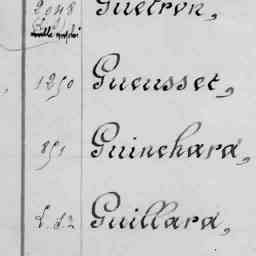 2048 Guétron,
1250 Gueusset,
851 Guinchard,
Guillard,